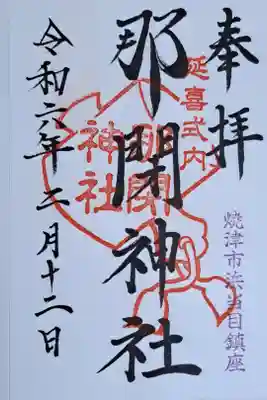 奉拝
延喜式内
焼津市浜当目鎮座
那閉神社
那閉神社
令和六年二月十二日